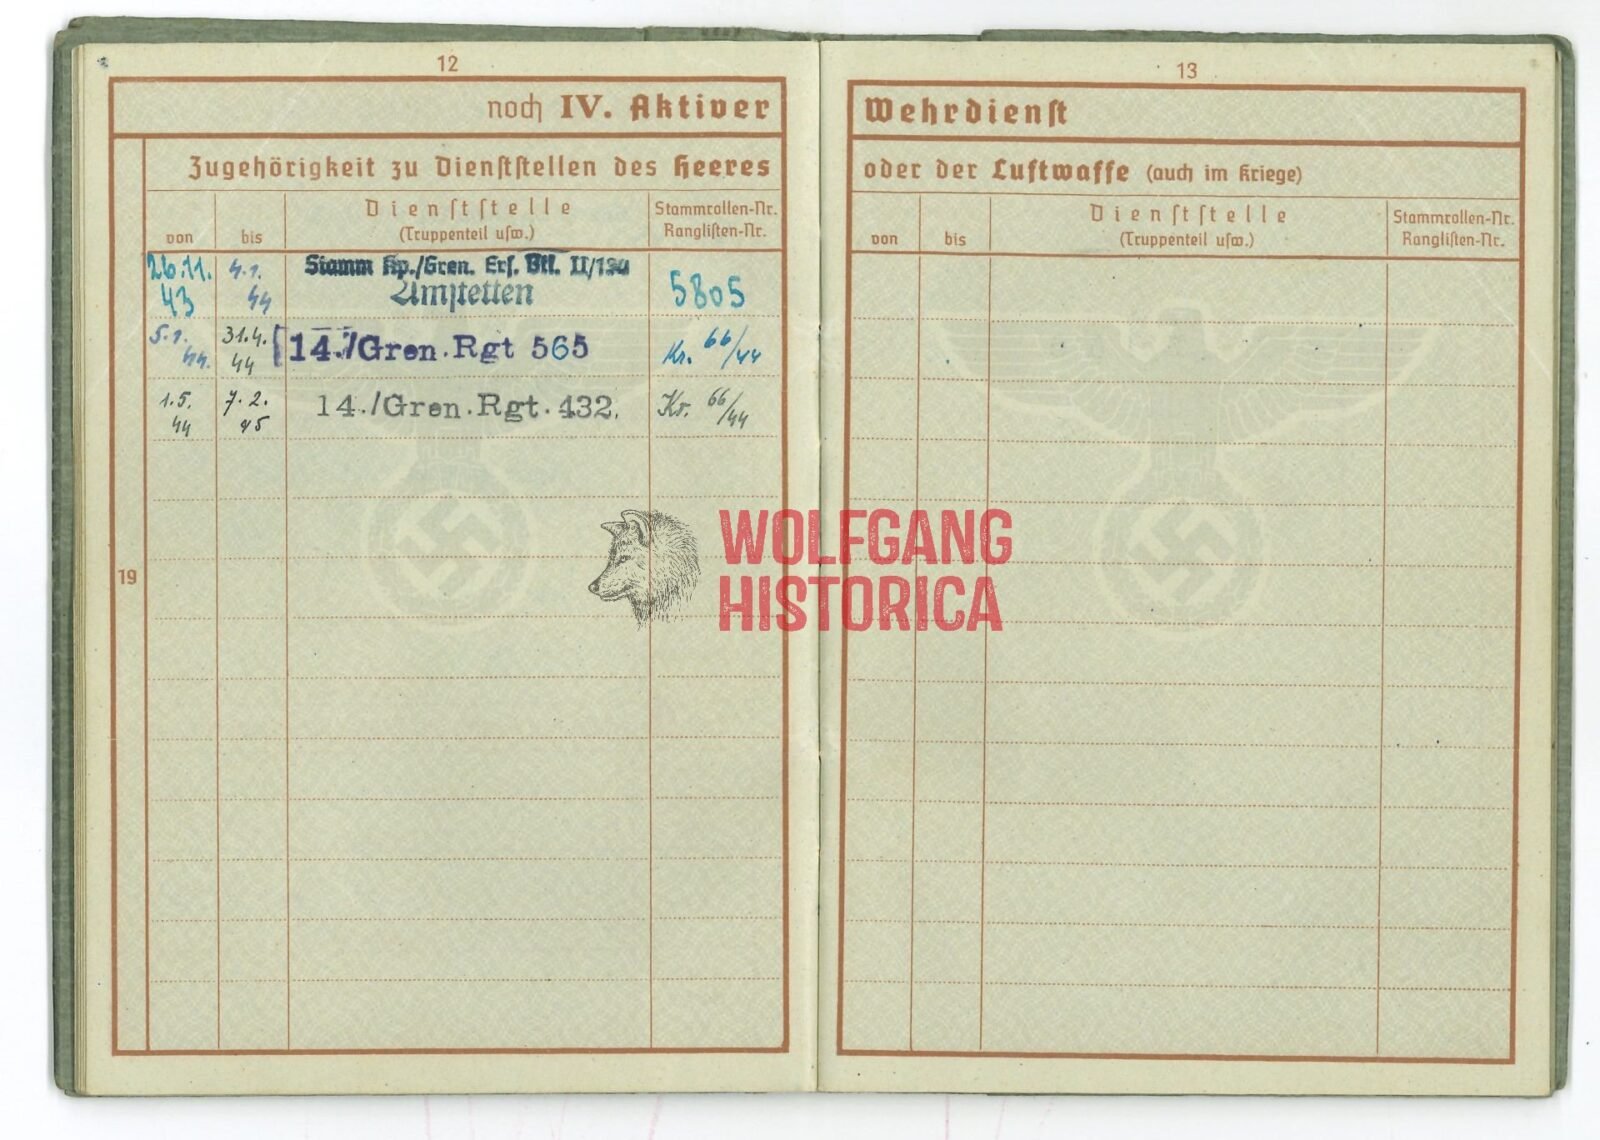 12
noch IV. Aktiver
Zugehörigkeit zu Dienststellen des Heeres
von
bis
Dienststelle
(Truppenteil usw.)
Stammrollen-Nr.
Ranglisten-Nr.
26.11.
43
4.1.
44
Stamm Kp./Gren. Ers. Btl. II/130
Amstetten
5805
5.1.
44.
31.4.
44
14./Gren.Rgt 565
Kr. 66/44
1.5.
44
7.2.
45
14./Gren.Rgt.432.
Kr. 66/44
19
13
Wehrdienst
oder der Luftwaffe (auch im Kriege)
von
bis
Dienststelle
(Truppenteil usw.)
Stammrollen-Nr.
Ranglisten-Nr.
WOLFGANG
HISTORICA